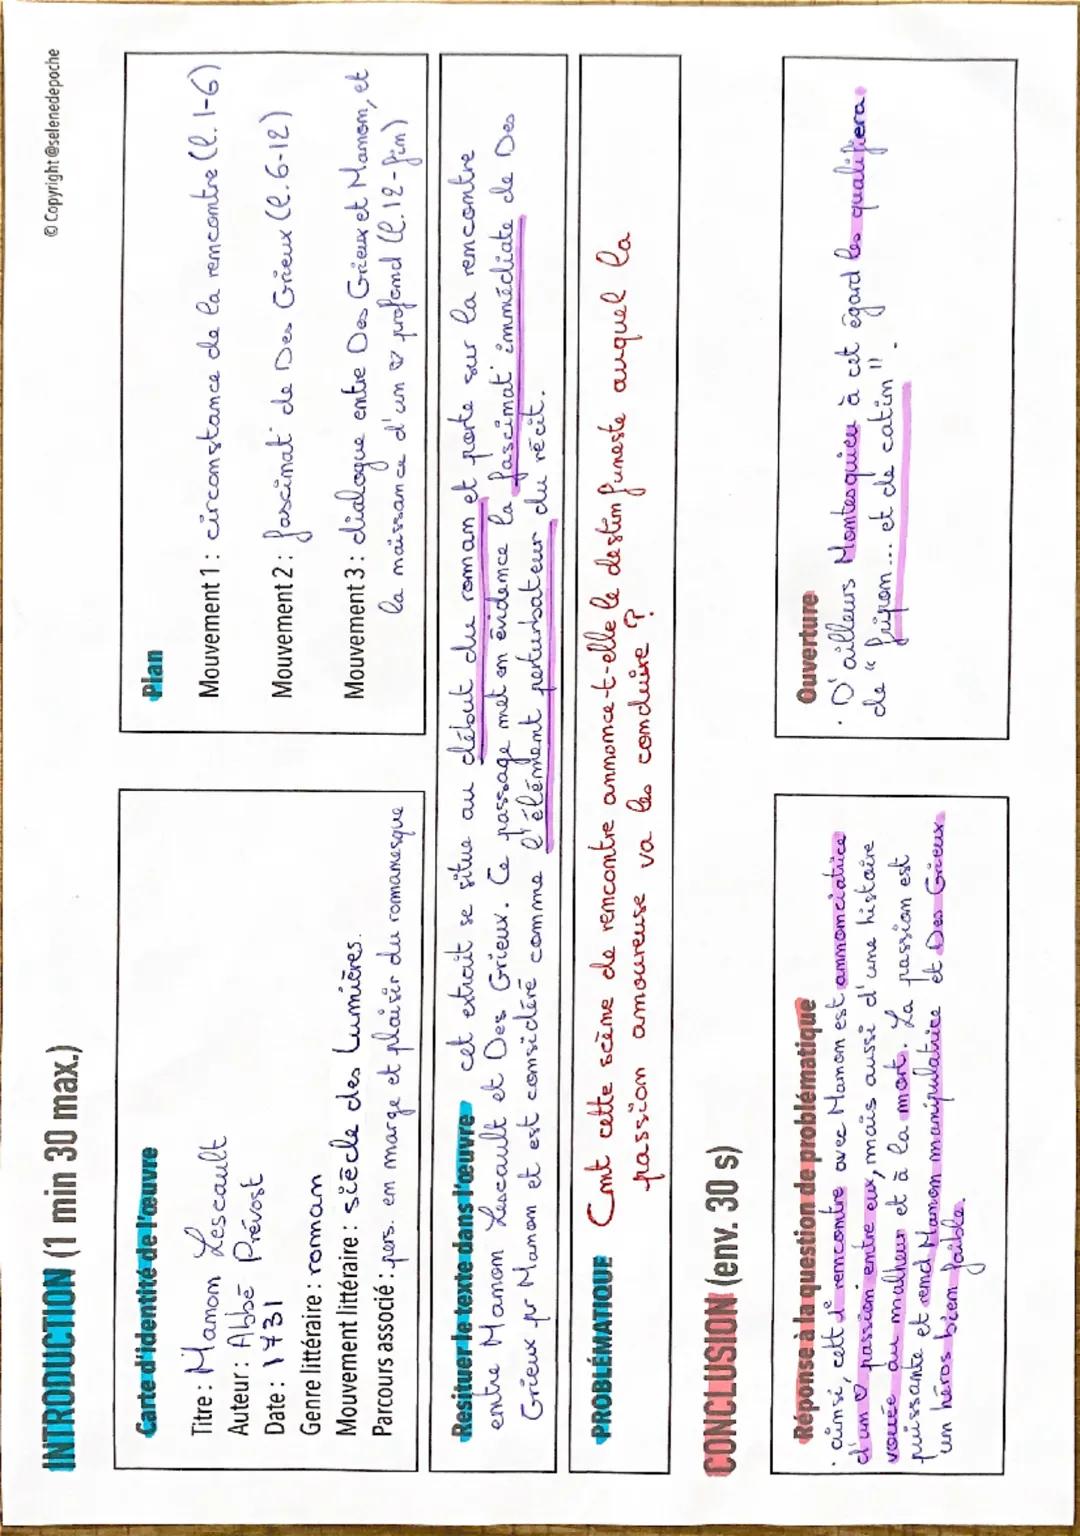 © Copyright @selenedepoche
INTRODUCTION (1 min 30 max.)
Carte d'identité de l'œuvre
Titre : Manon Lescault
Auteur : Abbé Prévost
Date : 1731
Genre littéraire : roman
Mouvement littéraire : siècle des Lumières.
Parcours associé : pers. en marge et plaisir du romanesque
Plan
Mouvement 1 : circonstance de la rencontre (l. 1-6)
Mouvement 2 : fascinat° de Des Grieux (l. 6-12)
Mouvement 3 : dialogue entre Des Grieux et Manon, et
la naissance d'un ♡ profond (l. 12-fin)
Resituer le texte dans l'œuvre cet extrait se situe au début du roman et porte sur la rencontre
entre Manon Lescault et Des Grieux. Ce passage met en évidence la fascinat° immédiate de Des
Grieux pr Manon et est considéré comme l'élément perturbateur du récit.
PROBLÉMATIQUE Cmt cette scène de rencontre annonce-t-elle le destin funeste auquel la
passion amoureuse va les conduire ?
CONCLUSION (env. 30 s)
Réponse à la question de problématique
· ainsi, cett de rencontre avec Manon est annonciatrice
d'un ♡ passion entre eux, mais aussi d'une histoire
vouée au malheur et à la mort. La passion est
puissante et rend Manon manipulatrice et Des Grieux
un héros bien faible.
Ouverture
· D'ailleurs Montesquieu à cet égard les qualifiera
de "fripon... et de catin".